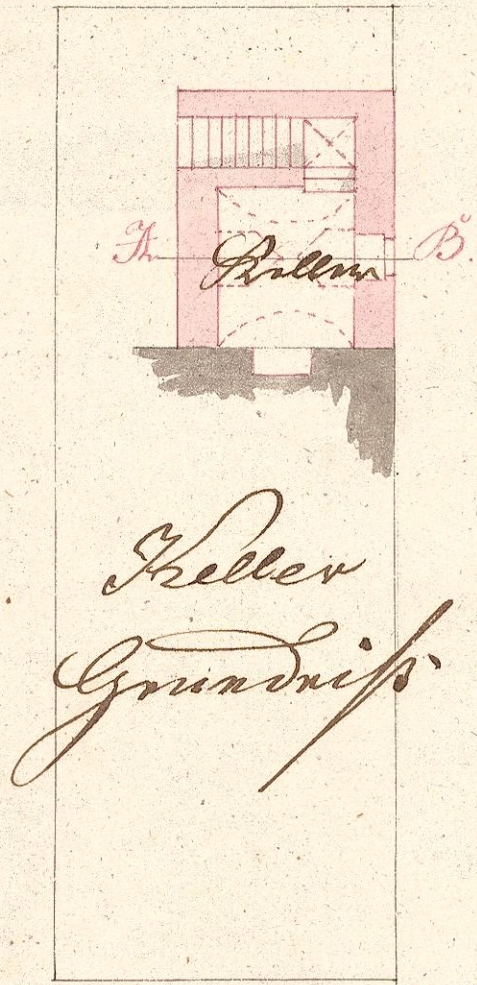 A. Keller B.
Keller
Grundriß